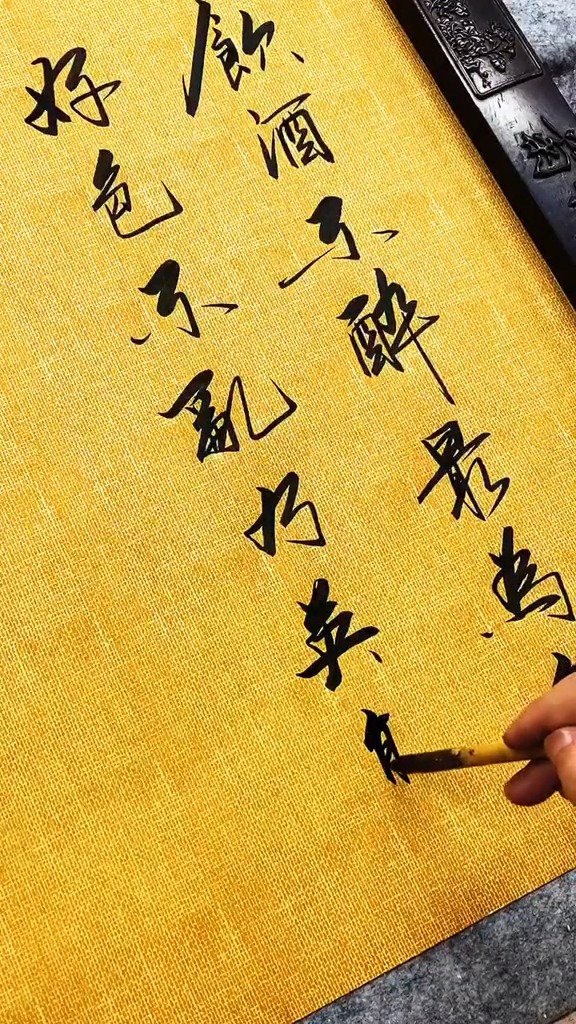 飲酒不醉最為
好色不亂英